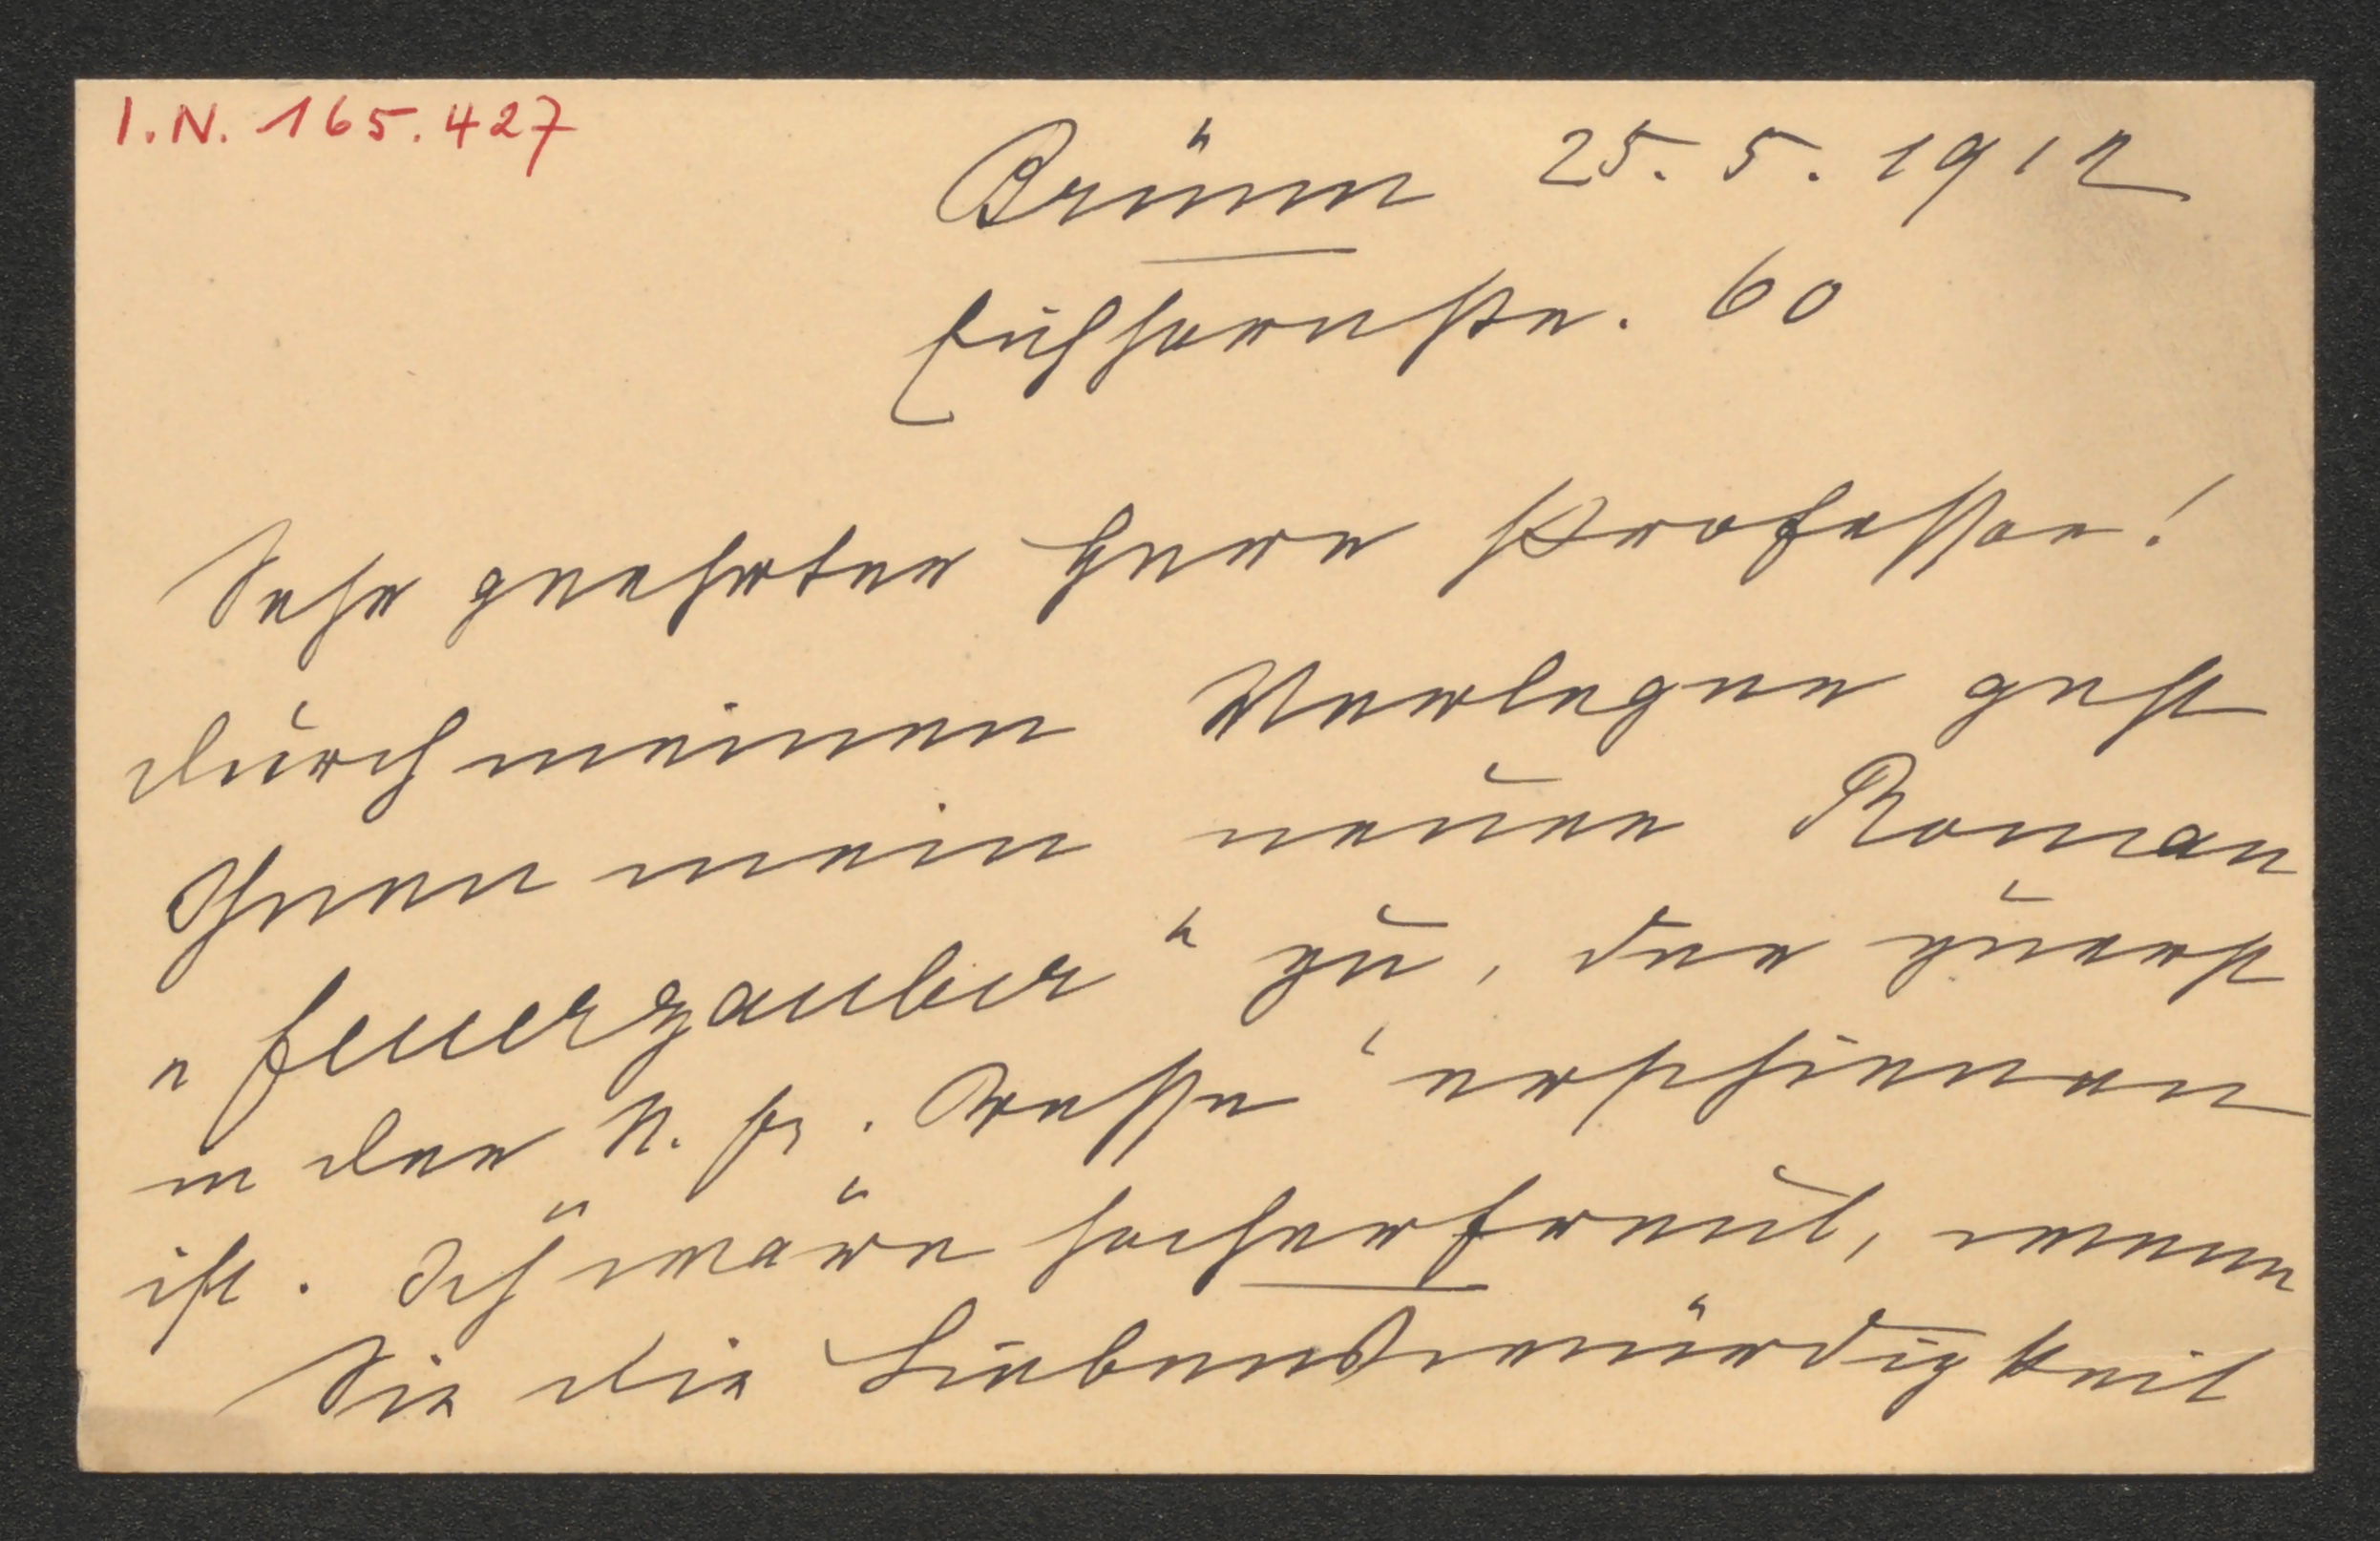 I.N. 165.427
Brünn 25. 5. 1912
Eichhornstr. 60
Sehr geehrter Herr Professor!
durch meinen Verleger geht
Ihnen mein neuer Roman
„Feuerzauber“ zu, der zuerst
in der „N. fr. Presse“ erschienen
ist. Ich wäre hocherfreut, wenn
Sie die Liebenswürdigkeit